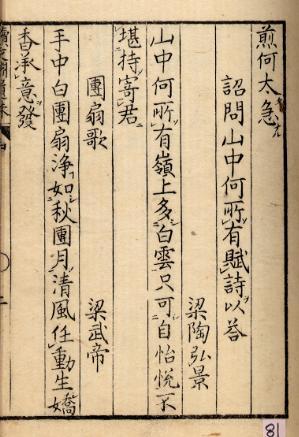 煎何太急
詔問山中何所有賦詩以答
梁陶弘景
山中何所有嶺上多白雲只可自怡悅不
堪持寄君
團扇歌
梁武帝
手中白團扇淨如秋團月清風任動生嬌
香承意發
81